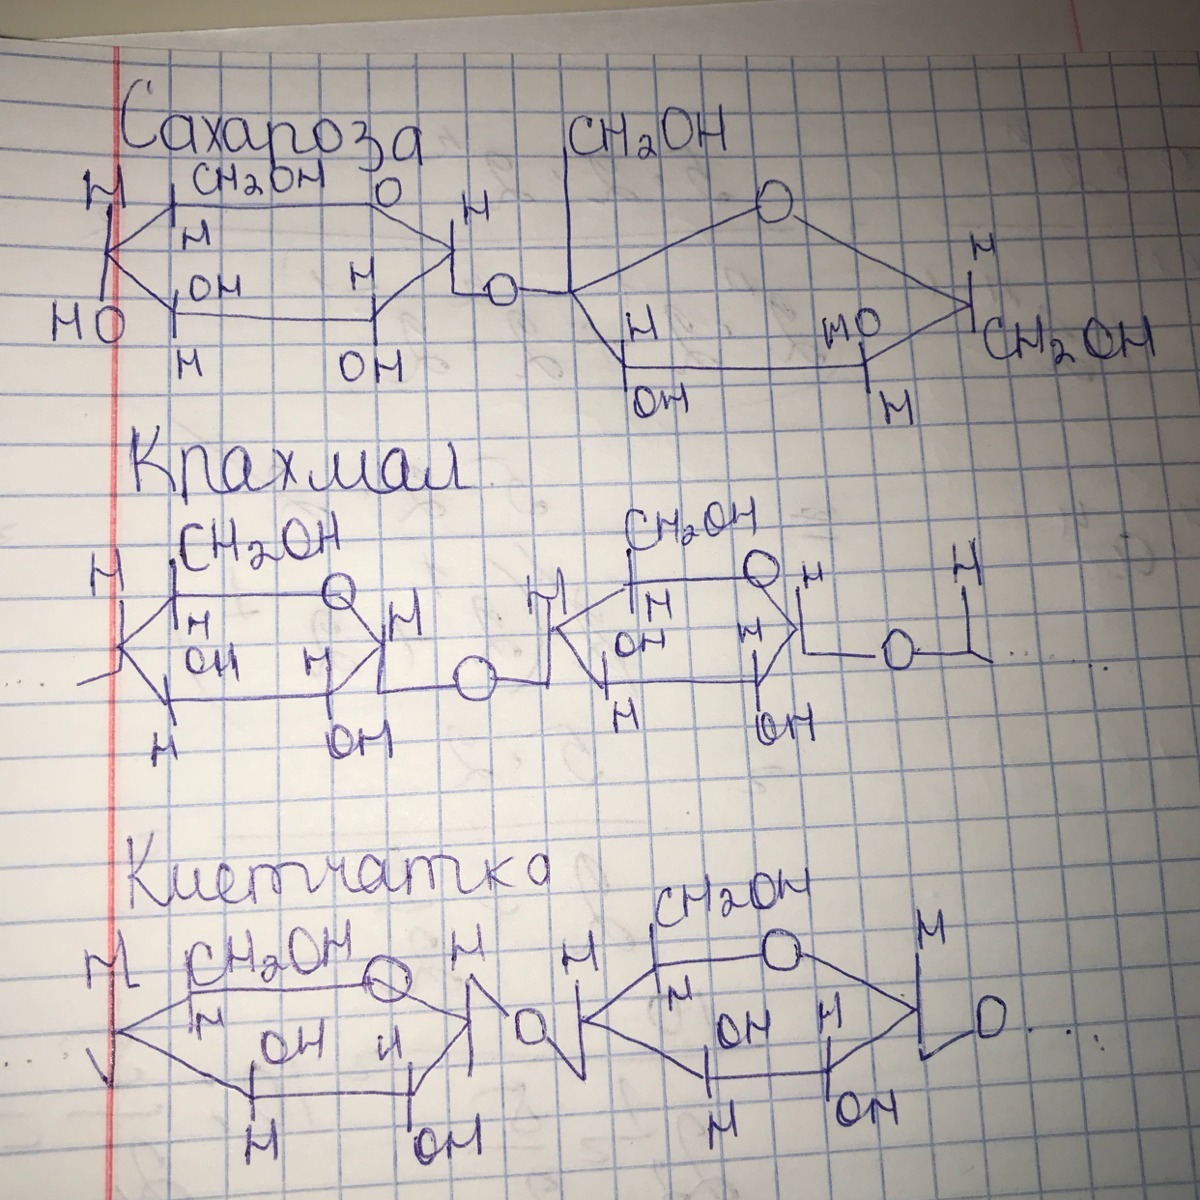 Сахароза
CH2OH
H CH2OH O H
H
OH H O O H
HO H OH H HO CH2OH
OH H
Крахмал
CH2OH CH2OH
H O H H O H H
H H
OH H OH H
O O
H OH H OH
Клетчатка
CH2OH
H CH2OH O H H O H
H H
OH H O OH H O
H OH H OH